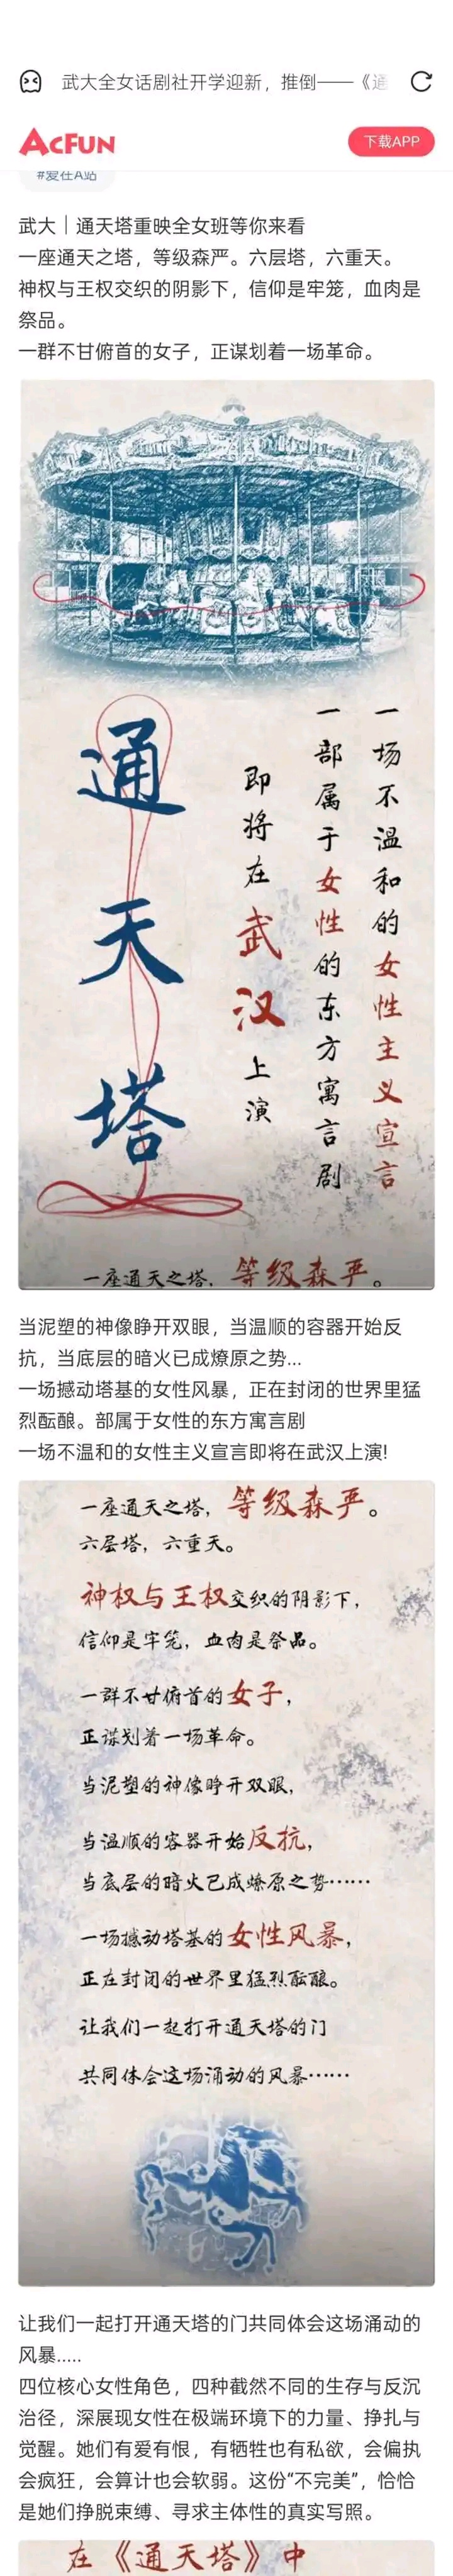 武大全女话剧社开学迎新，推倒——《通
AcFun
下载APP
#爱在A站
武大｜通天塔重映全女班等你来看
一座通天之塔，等级森严。六层塔，六重天。
神权与王权交织的阴影下，信仰是牢笼，血肉是
祭品。
一群不甘俯首的女子，正谋划着一场革命。
一场不温和的女性主义宣言
一部属于女性的东方寓言剧
即将在武汉上演
通天塔
一座通天之塔，等级森严。
当泥塑的神像睁开双眼，当温顺的容器开始反
抗，当底层的暗火已成燎原之势...
一场撼动塔基的女性风暴，正在封闭的世界里猛
烈酝酿。部属于女性的东方寓言剧
一场不温和的女性主义宣言即将在武汉上演!
一座通天之塔，等级森严。
六层塔，六重天。
神权与王权交织的阴影下，
信仰是牢笼，血肉是祭品。
一群不甘俯首的女子，
正谋划着一场革命。
当泥塑的神像睁开双眼，
当温顺的容器开始反抗，
当底层的暗火已成燎原之势……
一场撼动塔基的女性风暴，
正在封闭的世界里猛烈酝酿。
让我们一起打开通天塔的门
共同体会这场涌动的风暴……
让我们一起打开通天塔的门共同体会这场涌动的
风暴.....
四位核心女性角色，四种截然不同的生存与反沉
治径，深展现女性在极端环境下的力量、挣扎与
觉醒。她们有爱有恨，有牺牲也有私欲，会偏执
会疯狂，会算计也会软弱。这份“不完美”，恰恰
是她们挣脱束缚、寻求主体性的真实写照。
在《通天塔》中